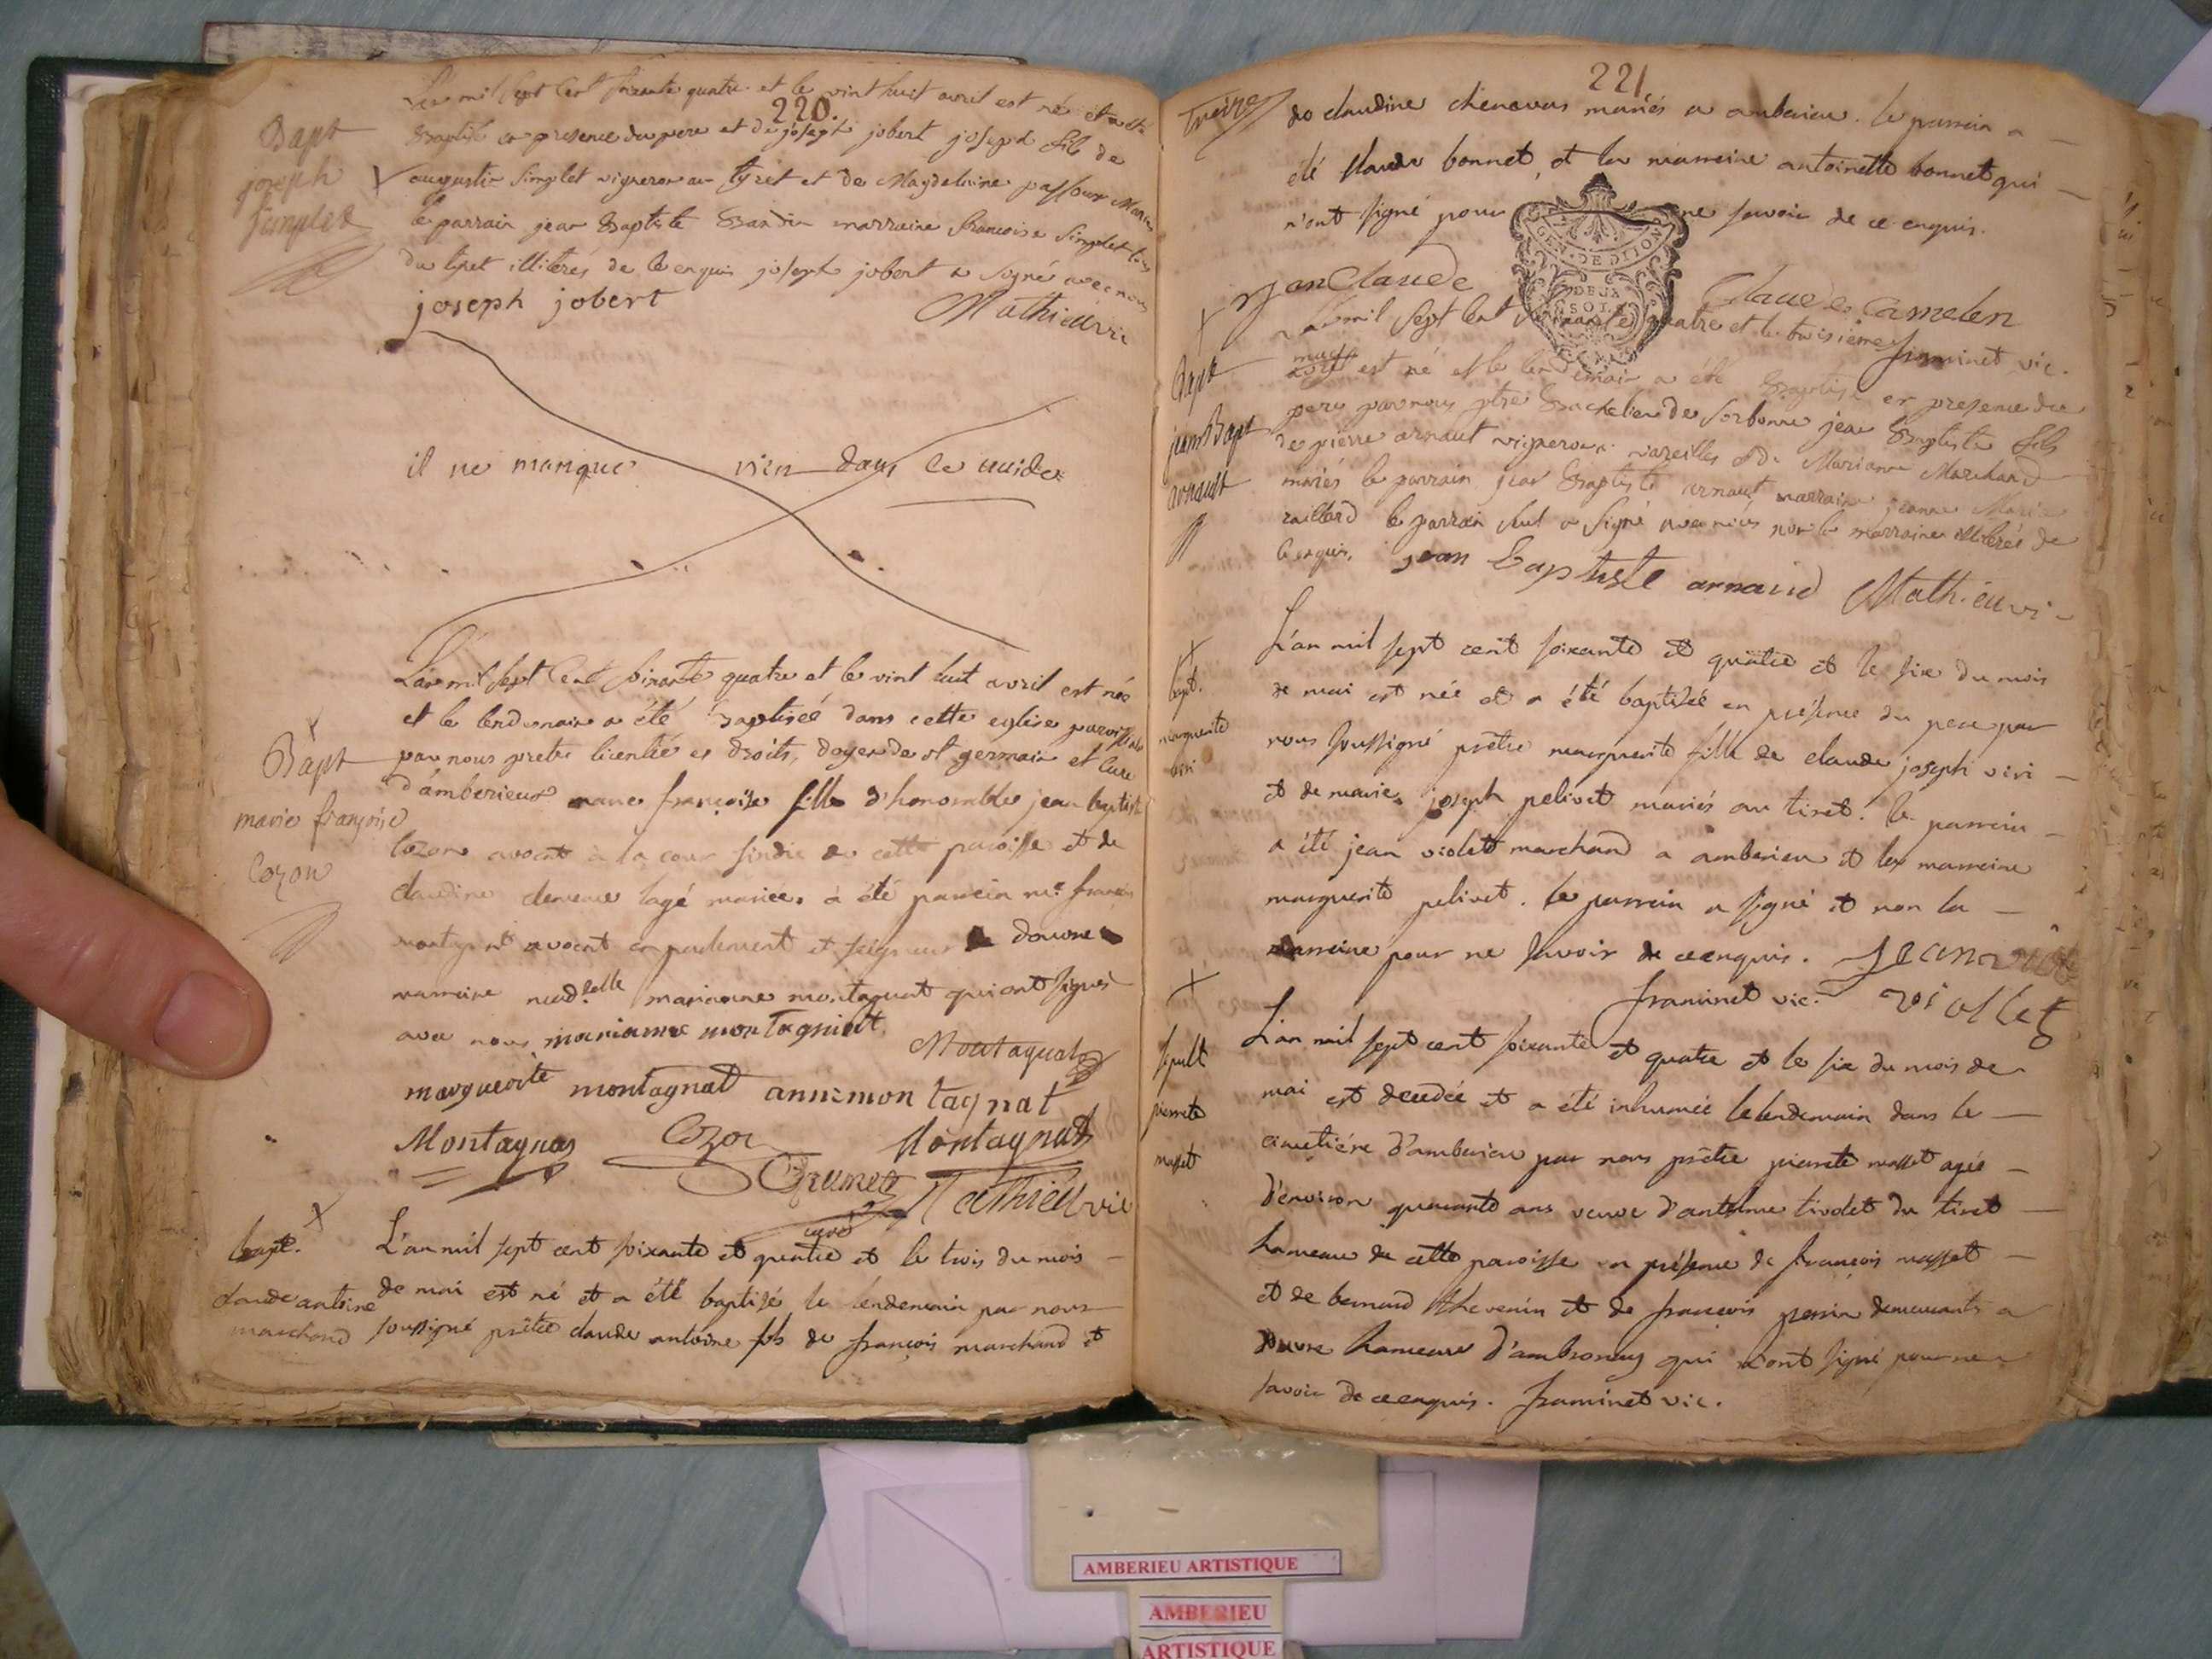 220.
Bapt
joseph
simplet
L'an mil sept cent soixante quatre et le vint huit avril est né et a été
Baptisé en presence du pere et de joseph jobert joseph fils de
augustin simplet vigneron au tyret et de Magdeleine passour Mariés
le parrain jean Baptiste Bardin marraine francoise simplet tous
du tiret illiterés de ce enquis joseph jobert a signé avec nous
joseph jobert Mathieu vic
il ne manque rien dans ce vuide
Bapt
marie françoise
Cozon
L'an mil sept cent soixante quatre et le vint huit avril est née
et le lendemain a été Baptiseé dans cette eglise paroissiale
par nous pretre licentié es droits, doyen de st germain et curé
d'amberieux marie françoise fille d'honorable jean baptiste
Cozon avocat à la cour sindic de cette paroisse et de
claudine lagé mariées a été parrein mr. françois
montagnat avocat en parlement et seigneur douvre
marreine mad.elle marianne montagnat qui ont signés
avec nous marianne montagniat
Montagnat
marguerite montagnat anne mon tagnat
Montagnat Cozon Montagnat
Brunet Mathieu vic
curé
bapt.
claude antoine
marchand
L'an mil sept cent soixante et quatre et le trois du mois
de mai est né et a été baptisé le lendemain par nous
soussigné prêtre claude antoine fils de françois marchand et
221
treize
de claudine chenavas mariés a amberieu. le parrein a
été claude bonnet, et la marreine antoinette bonnet qui
n'ont signé pour ne savoir de ce enquis.
GEN. DE DIJON
DEUX
SOLS
jan Claude Claude Camelen
framinet vic.
Bapt
jean Bapt
arnault
L'an mil sept cent soixante quatre et le troisieme
may est né et le lendemain a été Baptisé en presence du
pere par nous ptre Bachelier de sorbonne jean Baptiste fils
de pierre arnaut vigneron a vareilles et de Marianne Marchand
mariés le parrain jean Baptiste arnaut marraine jeanne Marie
raillard le parrain seul a signé avec nous non la marraine illiterée de
ce enquis. jean baptiste arnaud Mathieu vi
bapt.
marguerite
viri
L'an mil sept cent soixante et quatre et le six du mois
de mai est née et a été baptisée en présence du pere par
nous soussigné prêtre marguerite fille de claude joseph viri
et de marie joseph pelivet mariés au tiret. le parrein
a été jean violet marchand a amberieu et la marreine
marguerite pelivet. le parrein a signé et non la
marreine pour ne savoir de ce enquis. jean
framinet vic. viollet
sepult
pierrete
masset
L'an mil sept cent soixante et quatre et le six du mois de
mai est decedée et a été inhumée le lendemain dans le
cimetiére d'amberieu par nous prêtre pierrete masset agée
d'environ quarante ans veuve d'antelme tivolet du tiret
hameau de cette paroisse en présence de françois masset
et de bernard thevenin et de françois perrin demeurants a
douvre hameau d'ambronay qui n'ont signé pour ne
savoir de ce enquis. framinet vic.
AMBERIEU ARTISTIQUE
AMBERIEU
ARTISTIQUE